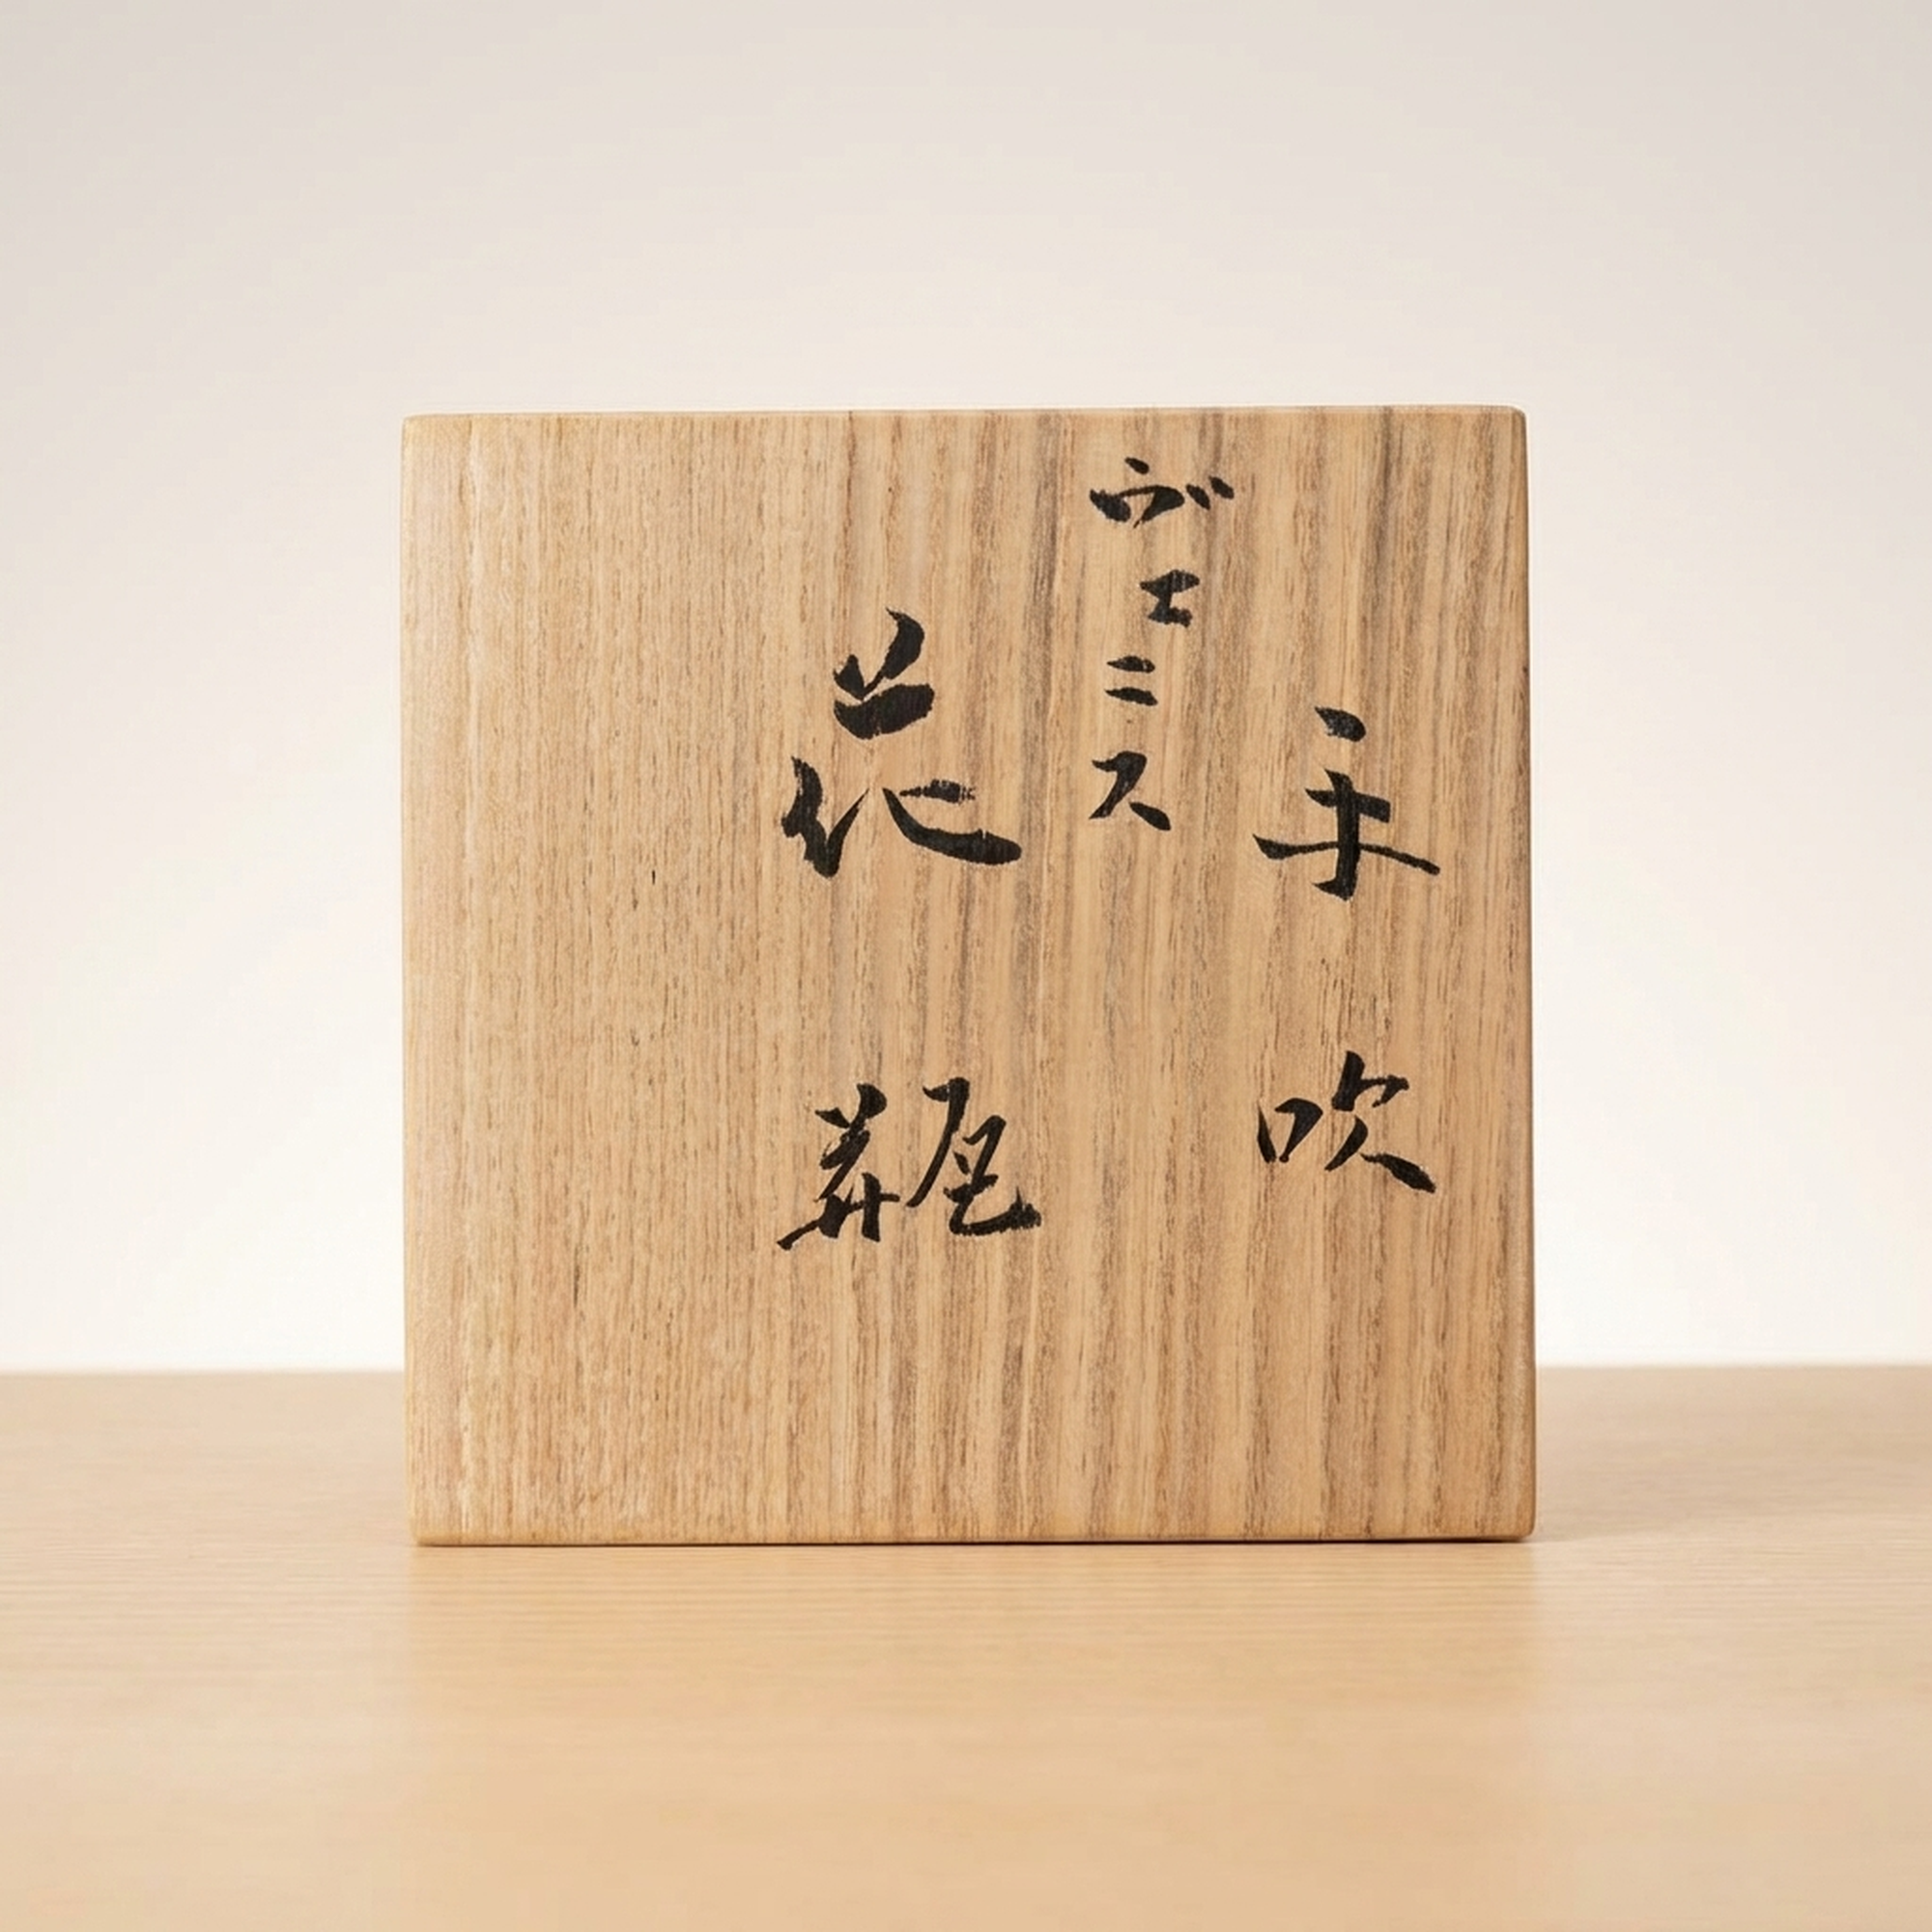 手吹
ヴェニス
花瓶